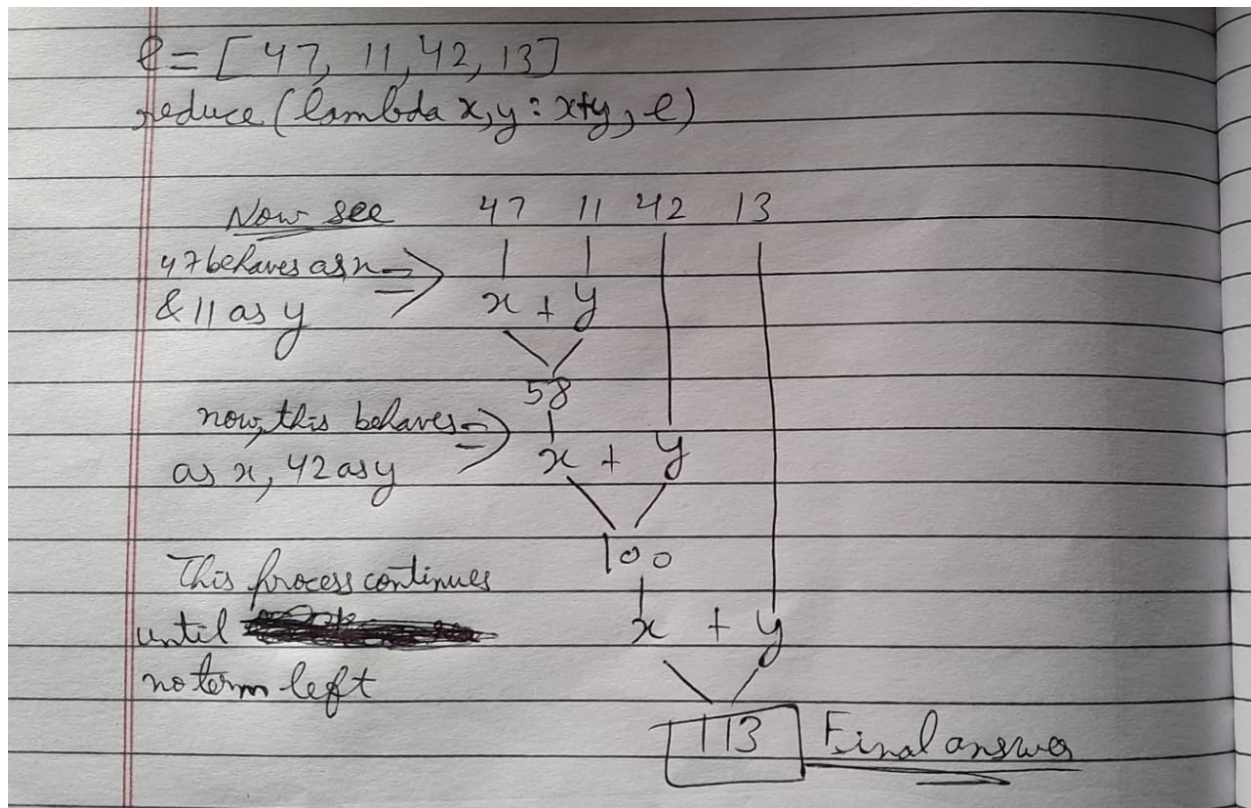 l = [47, 11, 42, 13]
reduce (lambda x, y : x+y, l)
Now see 47 11 42 13
47 behaves as x =>
& 11 as y x + y
58
now, this behaves =>
as x, 42 as y x + y
100
This process continues
until x + y
no term left
113 Final answer